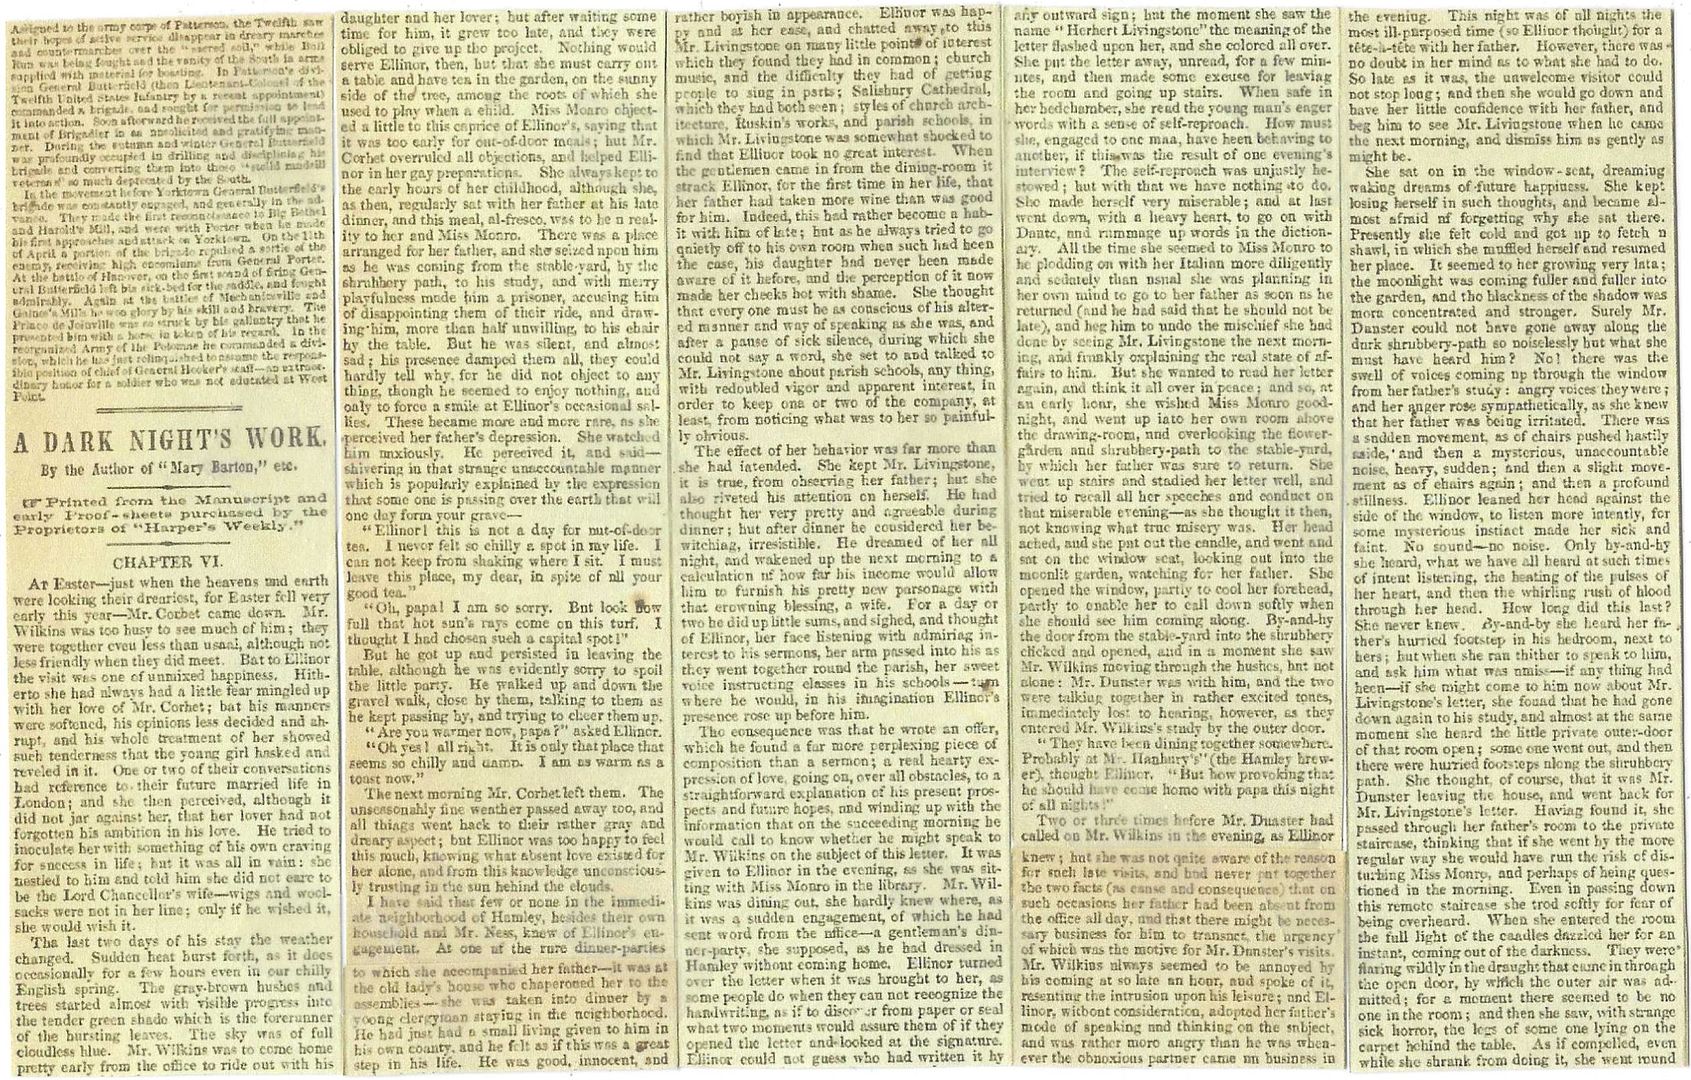 Assigned to the army corps of Patterson, the Twelfth saw
their hopes of active service disappear in dreary marches
and countermarches over the "sacred soil," while Bull
Run was being fought and the vanity of the South in arms
supplied with material for boasting. In Patterson's divi-
sion General Butterfield (then Lieutenant-Colonel of the
Twelfth United States Infantry by a recent appointment)
commanded a brigade, and sought for permission to lead
it into action. Soon afterward he received the full appoint-
ment of Brigadier in an unsolicited and gratifying man-
ner. During the autumn and winter General Butterfield
was profoundly occupied in drilling and disciplining his
brigade and converting them into those
veterans" so much deprecated by the South.
In the movement before Yorktown General Butterfield's
brigade was constantly engaged, and generally in the ad-
vance. They made the first reconnoissance to Big Bethel
and Harold's Mill, and were with Porter when he made
his first approaches and attack on Yorktown. On the 11th
of April a portion of the brigade repulsed a sortie of the
enemy, receiving high encomiums from General Porter.
At the battle of Hanover, on the first sound of firing Gen-
eral Butterfield left his sick-bed for the saddle, and fought
admirably. Again at the battles of Mechanicsville and
Gaines's Mills he won glory by his skill and bravery. The
Prince de Joinville was so struck by his gallantry that he
presented him with a horse in token of his regard. In the
reorganized Army of the Potomac he commanded a divi-
sion, which he has just relinquished to assume the respons-
ible position of chief of General Hooker's staff—an extraor-
dinary honor for a soldier who was not educated at West
Point.
A DARK NIGHT'S WORK.
By the Author of "Mary Barton," etc.
☞ Printed from the Manuscript and
early Proof-sheets purchased by the
Proprietors of "Harper's Weekly."
CHAPTER VI.
At Easter—just when the heavens and earth
were looking their dreariest, for Easter fell very
early this year—Mr. Corbet came down. Mr.
Wilkins was too busy to see much of him; they
were together even less than usual, although not
less friendly when they did meet. But to Ellinor
the visit was one of unmixed happiness. Hith-
erto she had always had a little fear mingled up
with her love of Mr. Corbet; but his manners
were softened, his opinions less decided and ab-
rupt, and his whole treatment of her showed
such tenderness that the young girl basked and
reveled in it. One or two of their conversations
had reference to their future married life in
London; and she then perceived, although it
did not jar against her, that her lover had not
forgotten his ambition in his love. He tried to
inoculate her with something of his own craving
for success in life; but it was all in vain: she
nestled to him and told him she did not care to
be the Lord Chancellor's wife—wigs and wool-
sacks were not in her line; only if he wished it,
she would wish it.
The last two days of his stay the weather
changed. Sudden heat burst forth, as it does
occasionally for a few hours even in our chilly
English spring. The gray-brown bushes and
trees started almost with visible progress into
the tender green shade which is the forerunner
of the bursting leaves. The sky was of full
cloudless blue. Mr. Wilkins was to come home
pretty early from the office to ride out with his
daughter and her lover; but after waiting some
time for him, it grew too late, and they were
obliged to give up the project. Nothing would
serve Ellinor, then, but that she must carry out
a table and have tea in the garden, on the sunny
side of the tree, among the roots of which she
used to play when a child. Miss Monro object-
ed a little to this caprice of Ellinor's, saying that
it was too early for out-of-door meals; but Mr.
Corbet overruled all objections, and helped Elli-
nor in her gay preparations. She always kept to
the early hours of her childhood, although she,
as then, regularly sat with her father at his late
dinner, and this meal, al-fresco, was to be a real-
ity to her and Miss Monro. There was a place
arranged for her father, and she seized upon him
as he was coming from the stable-yard, by the
shrubbery path, to his study, and with merry
playfulness made him a prisoner, accusing him
of disappointing them of their ride, and draw-
ing him, more than half unwilling, to his chair
by the table. But he was silent, and almost
sad; his presence damped them all, they could
hardly tell why, for he did not object to any
thing, though he seemed to enjoy nothing, and
only to force a smile at Ellinor's occasional sal-
lies. These became more and more rare, as she
perceived her father's depression. She watched
him anxiously. He perceived it, and said—
shivering in that strange unaccountable manner
which is popularly explained by the expression
that some one is passing over the earth that will
one day form your grave—
"Ellinor! this is not a day for out-of-door
tea. I never felt so chilly a spot in my life. I
can not keep from shaking where I sit. I must
leave this place, my dear, in spite of all your
good tea."
"Oh, papa! I am so sorry. But look how
full that hot sun's rays come on this turf. I
thought I had chosen such a capital spot!"
But he got up and persisted in leaving the
table, although he was evidently sorry to spoil
the little party. He walked up and down the
gravel walk, close by them, talking to them as
he kept passing by, and trying to cheer them up.
"Are you warmer now, papa?" asked Ellinor.
"Oh yes! all right. It is only that place that
seems so chilly and damp. I am as warm as a
toast now."
The next morning Mr. Corbet left them. The
unseasonably fine weather passed away too, and
all things went back to their rather gray and
dreary aspect; but Ellinor was too happy to feel
this much, knowing what absent love existed for
her alone, and from this knowledge unconscious-
ly trusting in the sun behind the clouds.
I have said that few or none in the immedi-
ate neighborhood of Hamley, besides their own
household and Mr. Ness, knew of Ellinor's en-
gagement. At one of the rare dinner-parties
to which she accompanied her father—it was at
the old lady's house who chaperoned her to the
assemblies—she was taken into dinner by a
young clergyman staying in the neighborhood.
He had just had a small living given to him in
his own county, and he felt as if this was a great
step in his life. He was good, innocent, and
rather boyish in appearance. Ellinor was hap-
py and at her ease, and chatted away to this
Mr. Livingstone on many little points of interest
which they found they had in common; church
music, and the difficulty they had of getting
people to sing in parts; Salisbury Cathedral,
which they had both seen; styles of church arch-
itecture, Ruskin's works, and parish schools, in
which Mr. Livingstone was somewhat shocked to
find that Ellinor took no great interest. When
the gentlemen came in from the dining-room it
struck Ellinor, for the first time in her life, that
her father had taken more wine than was good
for him. Indeed, this had rather become a hab-
it with him of late; but as he always tried to go
quietly off to his own room when such had been
the case, his daughter had never been made
aware of it before, and the perception of it now
made her cheeks hot with shame. She thought
that every one must be as conscious of his alter-
ed manner and way of speaking as she was, and
after a pause of sick silence, during which she
could not say a word, she set to and talked to
Mr. Livingstone about parish schools, any thing,
with redoubled vigor and apparent interest, in
order to keep one or two of the company, at
least, from noticing what was to her so painful-
ly obvious.
The effect of her behavior was far more than
she had intended. She kept Mr. Livingstone,
it is true, from observing her father; but she
also riveted his attention on herself. He had
thought her very pretty and agreeable during
dinner; but after dinner he considered her be-
witching, irresistible. He dreamed of her all
night, and wakened up the next morning to a
calculation of how far his income would allow
him to furnish his pretty new parsonage with
that crowning blessing, a wife. For a day or
two he did up little sums, and sighed, and thought
of Ellinor, her face listening with admiring in-
terest to his sermons, her arm passed into his as
they went together round the parish, her sweet
voice instructing classes in his schools—turn
where he would, in his imagination Ellinor's
presence rose up before him.
The consequence was that he wrote an offer,
which he found a far more perplexing piece of
composition than a sermon; a real hearty ex-
pression of love, going on, over all obstacles, to a
straightforward explanation of his present pros-
pects and future hopes, and winding up with the
information that on the succeeding morning he
would call to know whether he might speak to
Mr. Wilkins on the subject of this letter. It was
given to Ellinor in the evening, as she was sit-
ting with Miss Monro in the library. Mr. Wil-
kins was dining out, she hardly knew where, as
it was a sudden engagement, of which he had
sent word from the office—a gentleman's din-
ner-party, she supposed, as he had dressed in
Hamley without coming home. Ellinor turned
over the letter when it was brought to her, as
some people do when they can not recognize the
handwriting, as if to discover from paper or seal
what two moments would assure them of if they
opened the letter and looked at the signature.
Ellinor could not guess who had written it by
any outward sign; but the moment she saw the
name "Herbert Livingstone" the meaning of the
letter flashed upon her, and she colored all over.
She put the letter away, unread, for a few min-
utes, and then made some excuse for leaving
the room and going up stairs. When safe in
her bedchamber, she read the young man's eager
words with a sense of self-reproach. How must
she, engaged to one man, have been behaving to
another, if this was the result of one evening's
interview? The self-reproach was unjustly be-
stowed; but with that we have nothing to do.
She made herself very miserable; and at last
went down, with a heavy heart, to go on with
Dante, and rummage up words in the diction-
ary. All the time she seemed to Miss Monro to
be plodding on with her Italian more diligently
and sedately than usual she was planning in
her own mind to go to her father as soon as he
returned (and he had said that he should not be
late), and beg him to undo the mischief she had
done by seeing Mr. Livingstone the next morn-
ing, and frankly explaining the real state of af-
fairs to him. But she wanted to read her letter
again, and think it all over in peace; and so, at
an early hour, she wished Miss Monro good-
night, and went up into her own room above
the drawing-room, and overlooking the flower-
garden and shrubbery-path to the stable-yard,
by which her father was sure to return. She
went up stairs and studied her letter well, and
tried to recall all her speeches and conduct on
that miserable evening—as she thought it then,
not knowing what true misery was. Her head
ached, and she put out the candle, and went and
sat on the window seat, looking out into the
moonlit garden, watching for her father. She
opened the window, partly to cool her forehead,
partly to enable her to call down softly when
she should see him coming along. By-and-by
the door from the stable-yard into the shrubbery
clicked and opened, and in a moment she saw
Mr. Wilkins moving through the bushes, but not
alone: Mr. Dunster was with him, and the two
were talking together in rather excited tones,
immediately lost to hearing, however, as they
entered Mr. Wilkins's study by the outer door.
"They have been dining together somewhere.
Probably at Mr. Hanbury's" (the Hamley brew-
er), thought Ellinor. "But how provoking that
he should have come home with papa this night
of all nights!"
Two or three times before Mr. Dunster had
called on Mr. Wilkins in the evening, as Ellinor
knew; but she was not quite aware of the reason
for such late visits, and had never put together
the two facts (as cause and consequence) that on
such occasions her father had been absent from
the office all day, and that there might be neces-
sary business for him to transact, the urgency
of which was the motive for Mr. Dunster's visits.
Mr. Wilkins always seemed to be annoyed by
his coming at so late an hour, and spoke of it,
resenting the intrusion upon his leisure; and El-
linor, without consideration, adopted her father's
mode of speaking and thinking on the subject,
and was rather more angry than he was when-
ever the obnoxious partner came on business in
the evening. This night was of all nights the
most ill-purposed time (so Ellinor thought) for a
tête-à-tête with her father. However, there was
no doubt in her mind as to what she had to do.
So late as it was, the unwelcome visitor could
not stop long; and then she would go down and
have her little confidence with her father, and
beg him to see Mr. Livingstone when he came
the next morning, and dismiss him as gently as
might be.
She sat on in the window-seat, dreaming
waking dreams of future happiness. She kept
losing herself in such thoughts, and became al-
most afraid of forgetting why she sat there.
Presently she felt cold and got up to fetch a
shawl, in which she muffled herself and resumed
her place. It seemed to her growing very late;
the moonlight was coming fuller and fuller into
the garden, and the blackness of the shadow was
more concentrated and stronger. Surely Mr.
Dunster could not have gone away along the
dark shrubbery-path so noiselessly but what she
must have heard him? No! there was the
swell of voices coming up through the window
from her father's study: angry voices they were;
and her anger rose sympathetically, as she knew
that her father was being irritated. There was
a sudden movement, as of chairs pushed hastily
aside, and then a mysterious, unaccountable
noise, heavy, sudden; and then a slight move-
ment as of chairs again; and then a profound
stillness. Ellinor leaned her head against the
side of the window, to listen more intently, for
some mysterious instinct made her sick and
faint. No sound—no noise. Only by-and-by
she heard, what we have all heard at such times
of intent listening, the beating of the pulses of
her heart, and then the whirling rush of blood
through her head. How long did this last?
She never knew. By-and-by she heard her fa-
ther's hurried footstep in his bedroom, next to
hers; but when she ran thither to speak to him,
and ask him what was amiss—if any thing had
been—if she might come to him now about Mr.
Livingstone's letter, she found that he had gone
down again to his study, and almost at the same
moment she heard the little private outer-door
of that room open; some one went out, and then
there were hurried footsteps along the shrubbery
path. She thought, of course, that it was Mr.
Dunster leaving the house, and went back for
Mr. Livingstone's letter. Having found it, she
passed through her father's room to the private
staircase, thinking that if she went by the more
regular way she would have run the risk of dis-
turbing Miss Monro, and perhaps of being ques-
tioned in the morning. Even in passing down
this remote staircase she trod softly for fear of
being overheard. When she entered the room
the full light of the candles dazzled her for an
instant, coming out of the darkness. They were
flaring wildly in the draught that came in through
the open door, by which the outer air was ad-
mitted; for a moment there seemed to be no
one in the room; and then she saw, with strange
sick horror, the legs of some one lying on the
carpet behind the table. As if compelled, even
while she shrank from doing it, she went round